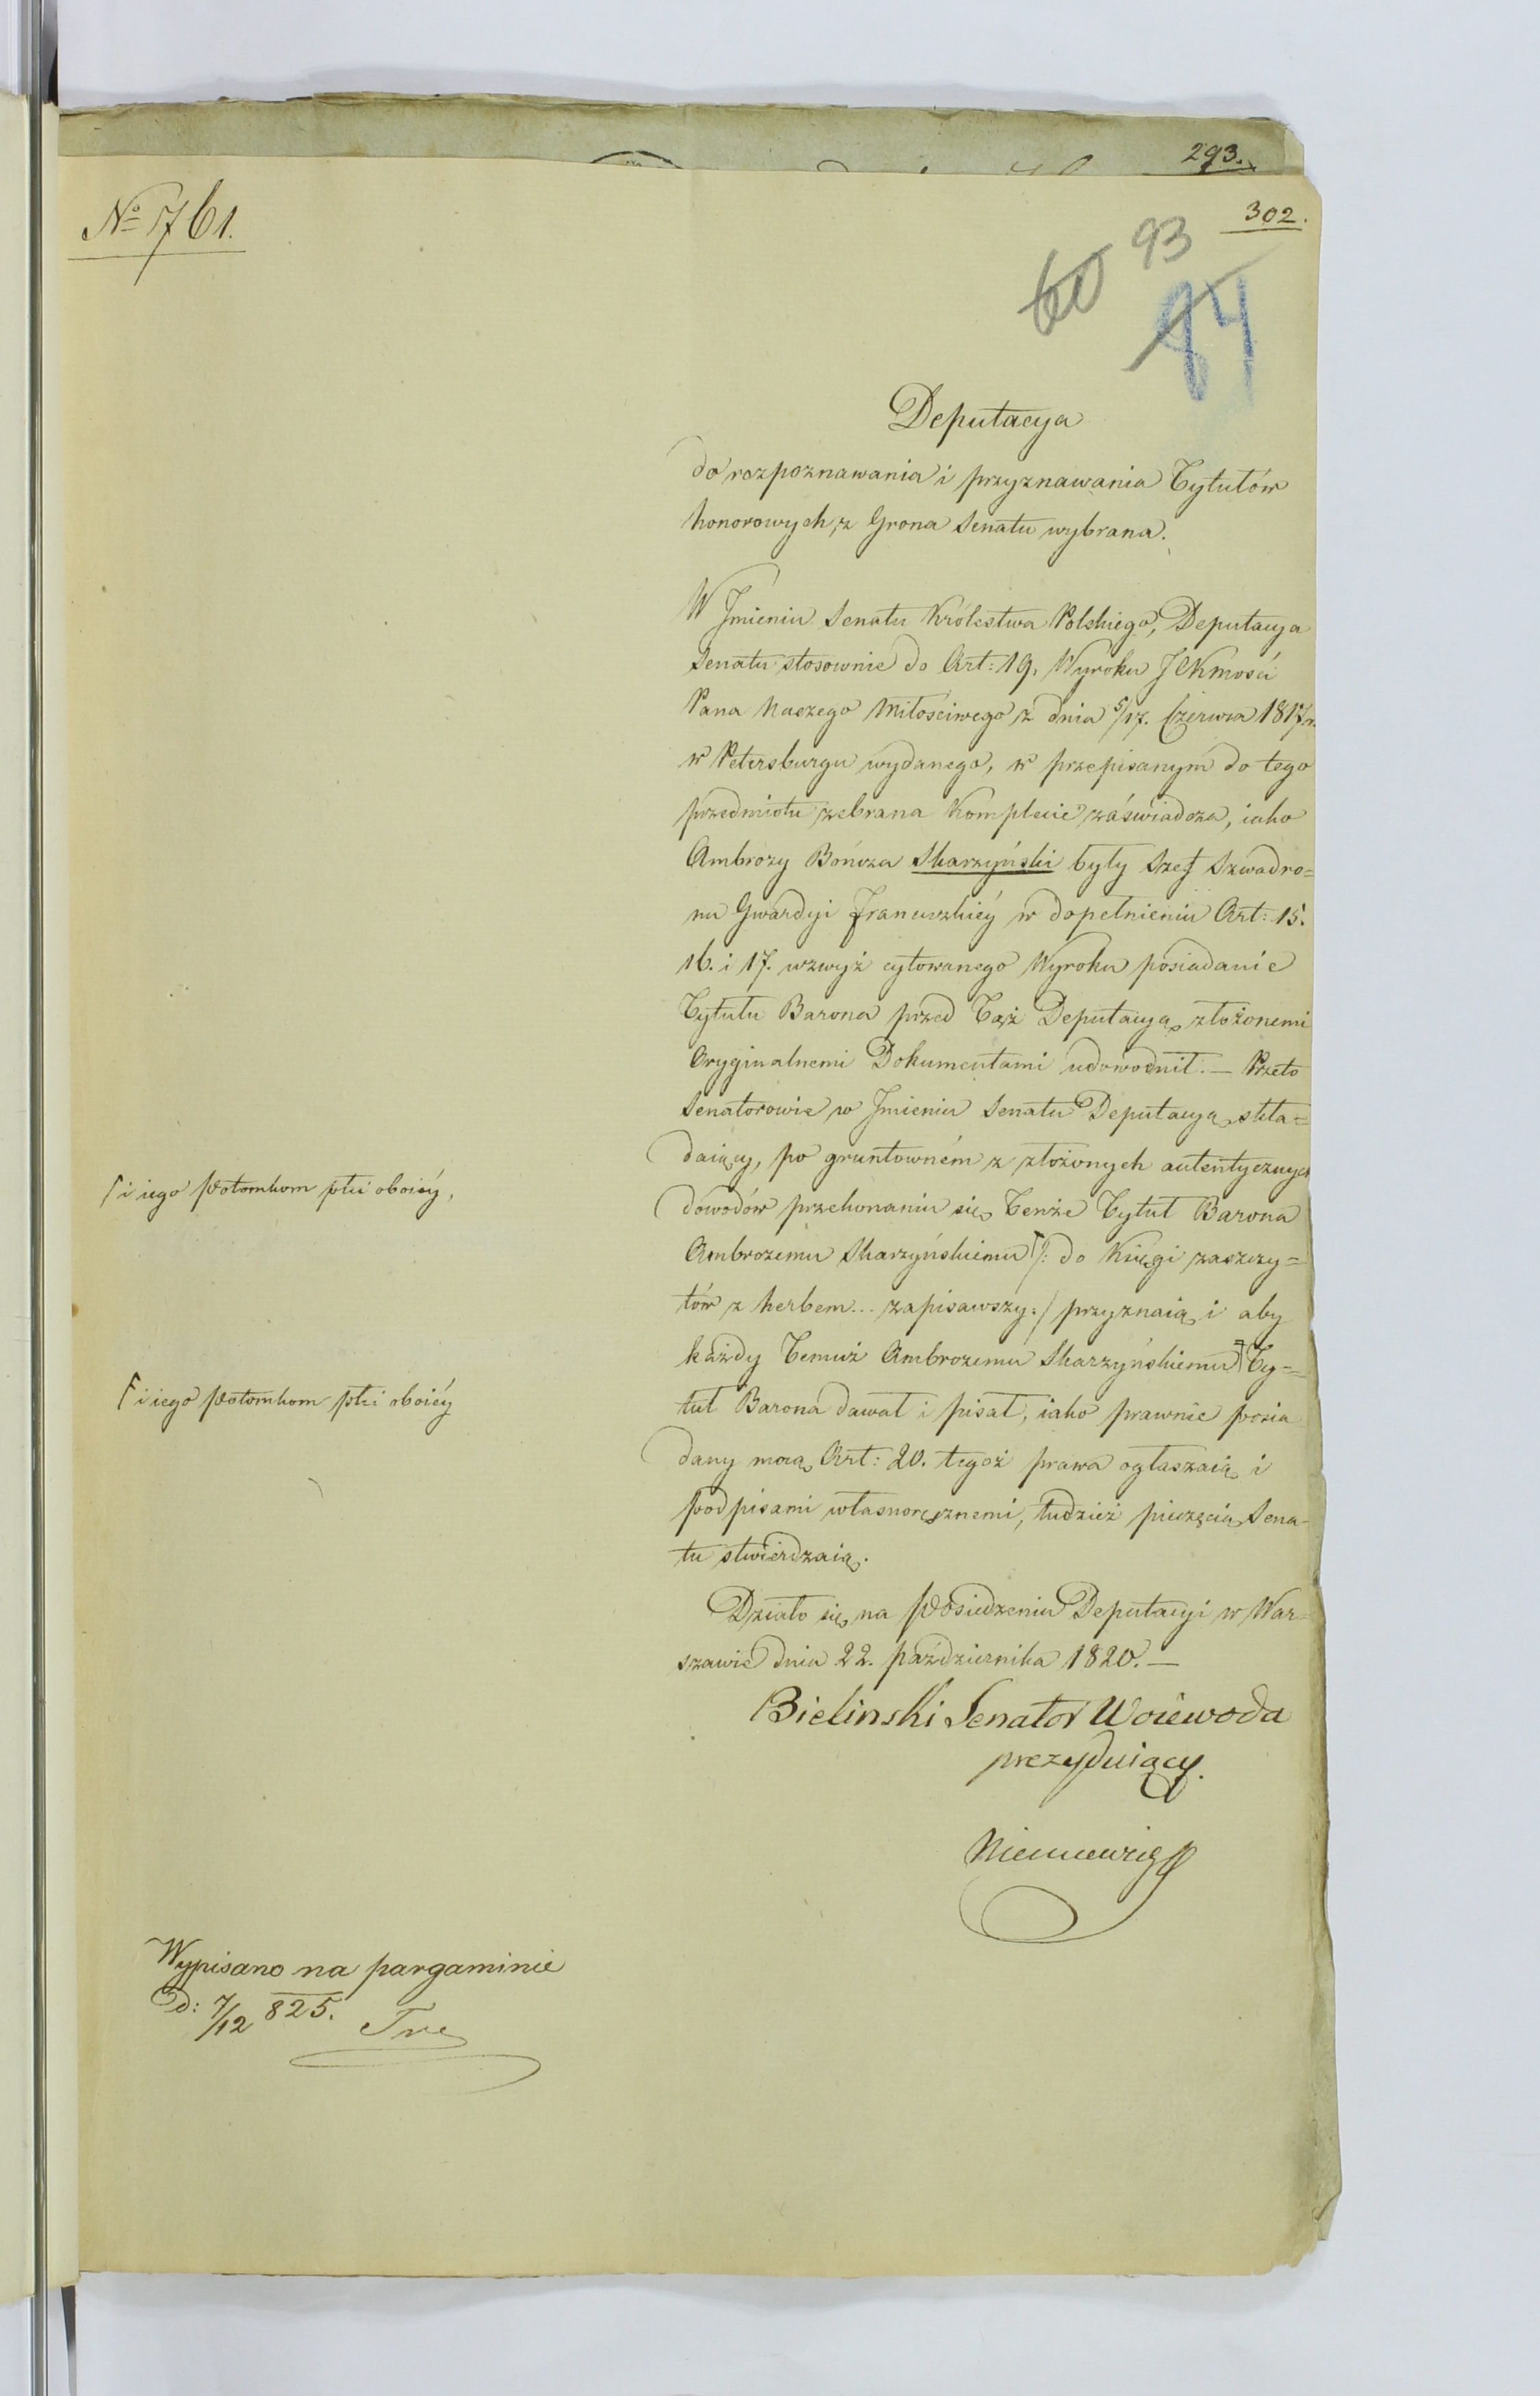 293.
302.
№ 761.
60 93
94
Deputacya
do rozpoznawania i przyznawania Tytułów
honorowych, z Grona Senatu wybrana.
W Jmieniu Senatu Królestwa Polskiego, Deputacya
Senatu stosownie do Art: 19. Wyroku JCKmości
Pana Naszego Miłościwego z dnia 5/17. Czerwca 1817 r.
w Petersburgu wydanego, w przepisanym do tego
przedmiotu zebrana Komplecie zaświadcza, iako
Ambroży Bończa Skarzyński były Szef Szwadro=
nu Gwardyi francuzkiey w dopełnieniu Art: 15.
16. i 17. wzwyż cytowanego Wyroku posiadanie
Tytułu Barona przed Tąż Deputacyą złożonemi
Oryginalnemi Dokumentami udowodnił. — Przeto
Senatorowie w Jmieniu Senatu Deputacyą skła=
daiący, po gruntowném z złożonych autentycznych
dowodów przekonaniu się Tenże Tytuł Barona
Ambrożemu Skarzyńskiemu ⌈ /: do Księgi zaszczy=
tów z herbem... zapisawszy :/ przyznaią i aby
każdy Temuż Ambrożemu Skarzyńskiemu Ty=
tuł Barona dawał i pisał, iako prawnie posia
dany mocą Art: 20. tegoż prawa ogłaszaią i
podpisami własnoręcznemi, tudzież pieczęcią Sena-
tu stwierdzaią.
Działo się na Posiedzeniu Deputacyi w War=
szawie dnia 22. października 1820. —
Bielinski Senator Woiewoda
prezyduiący.
Niemcewicz
⌈ i iego Potomkom płci oboiéy,
⌈ i iego Potomkom płci oboiéy
Wypisano na pargaminie
D: 7/12 825.